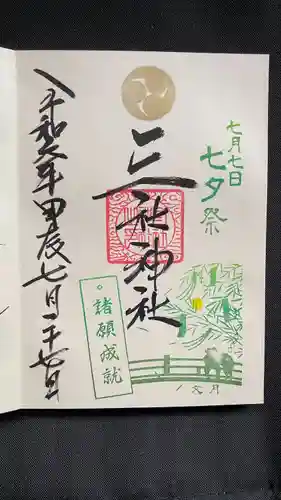 七月七日
七夕祭
三社神社
令和六年甲辰七月二十七日
諸願成就
文月